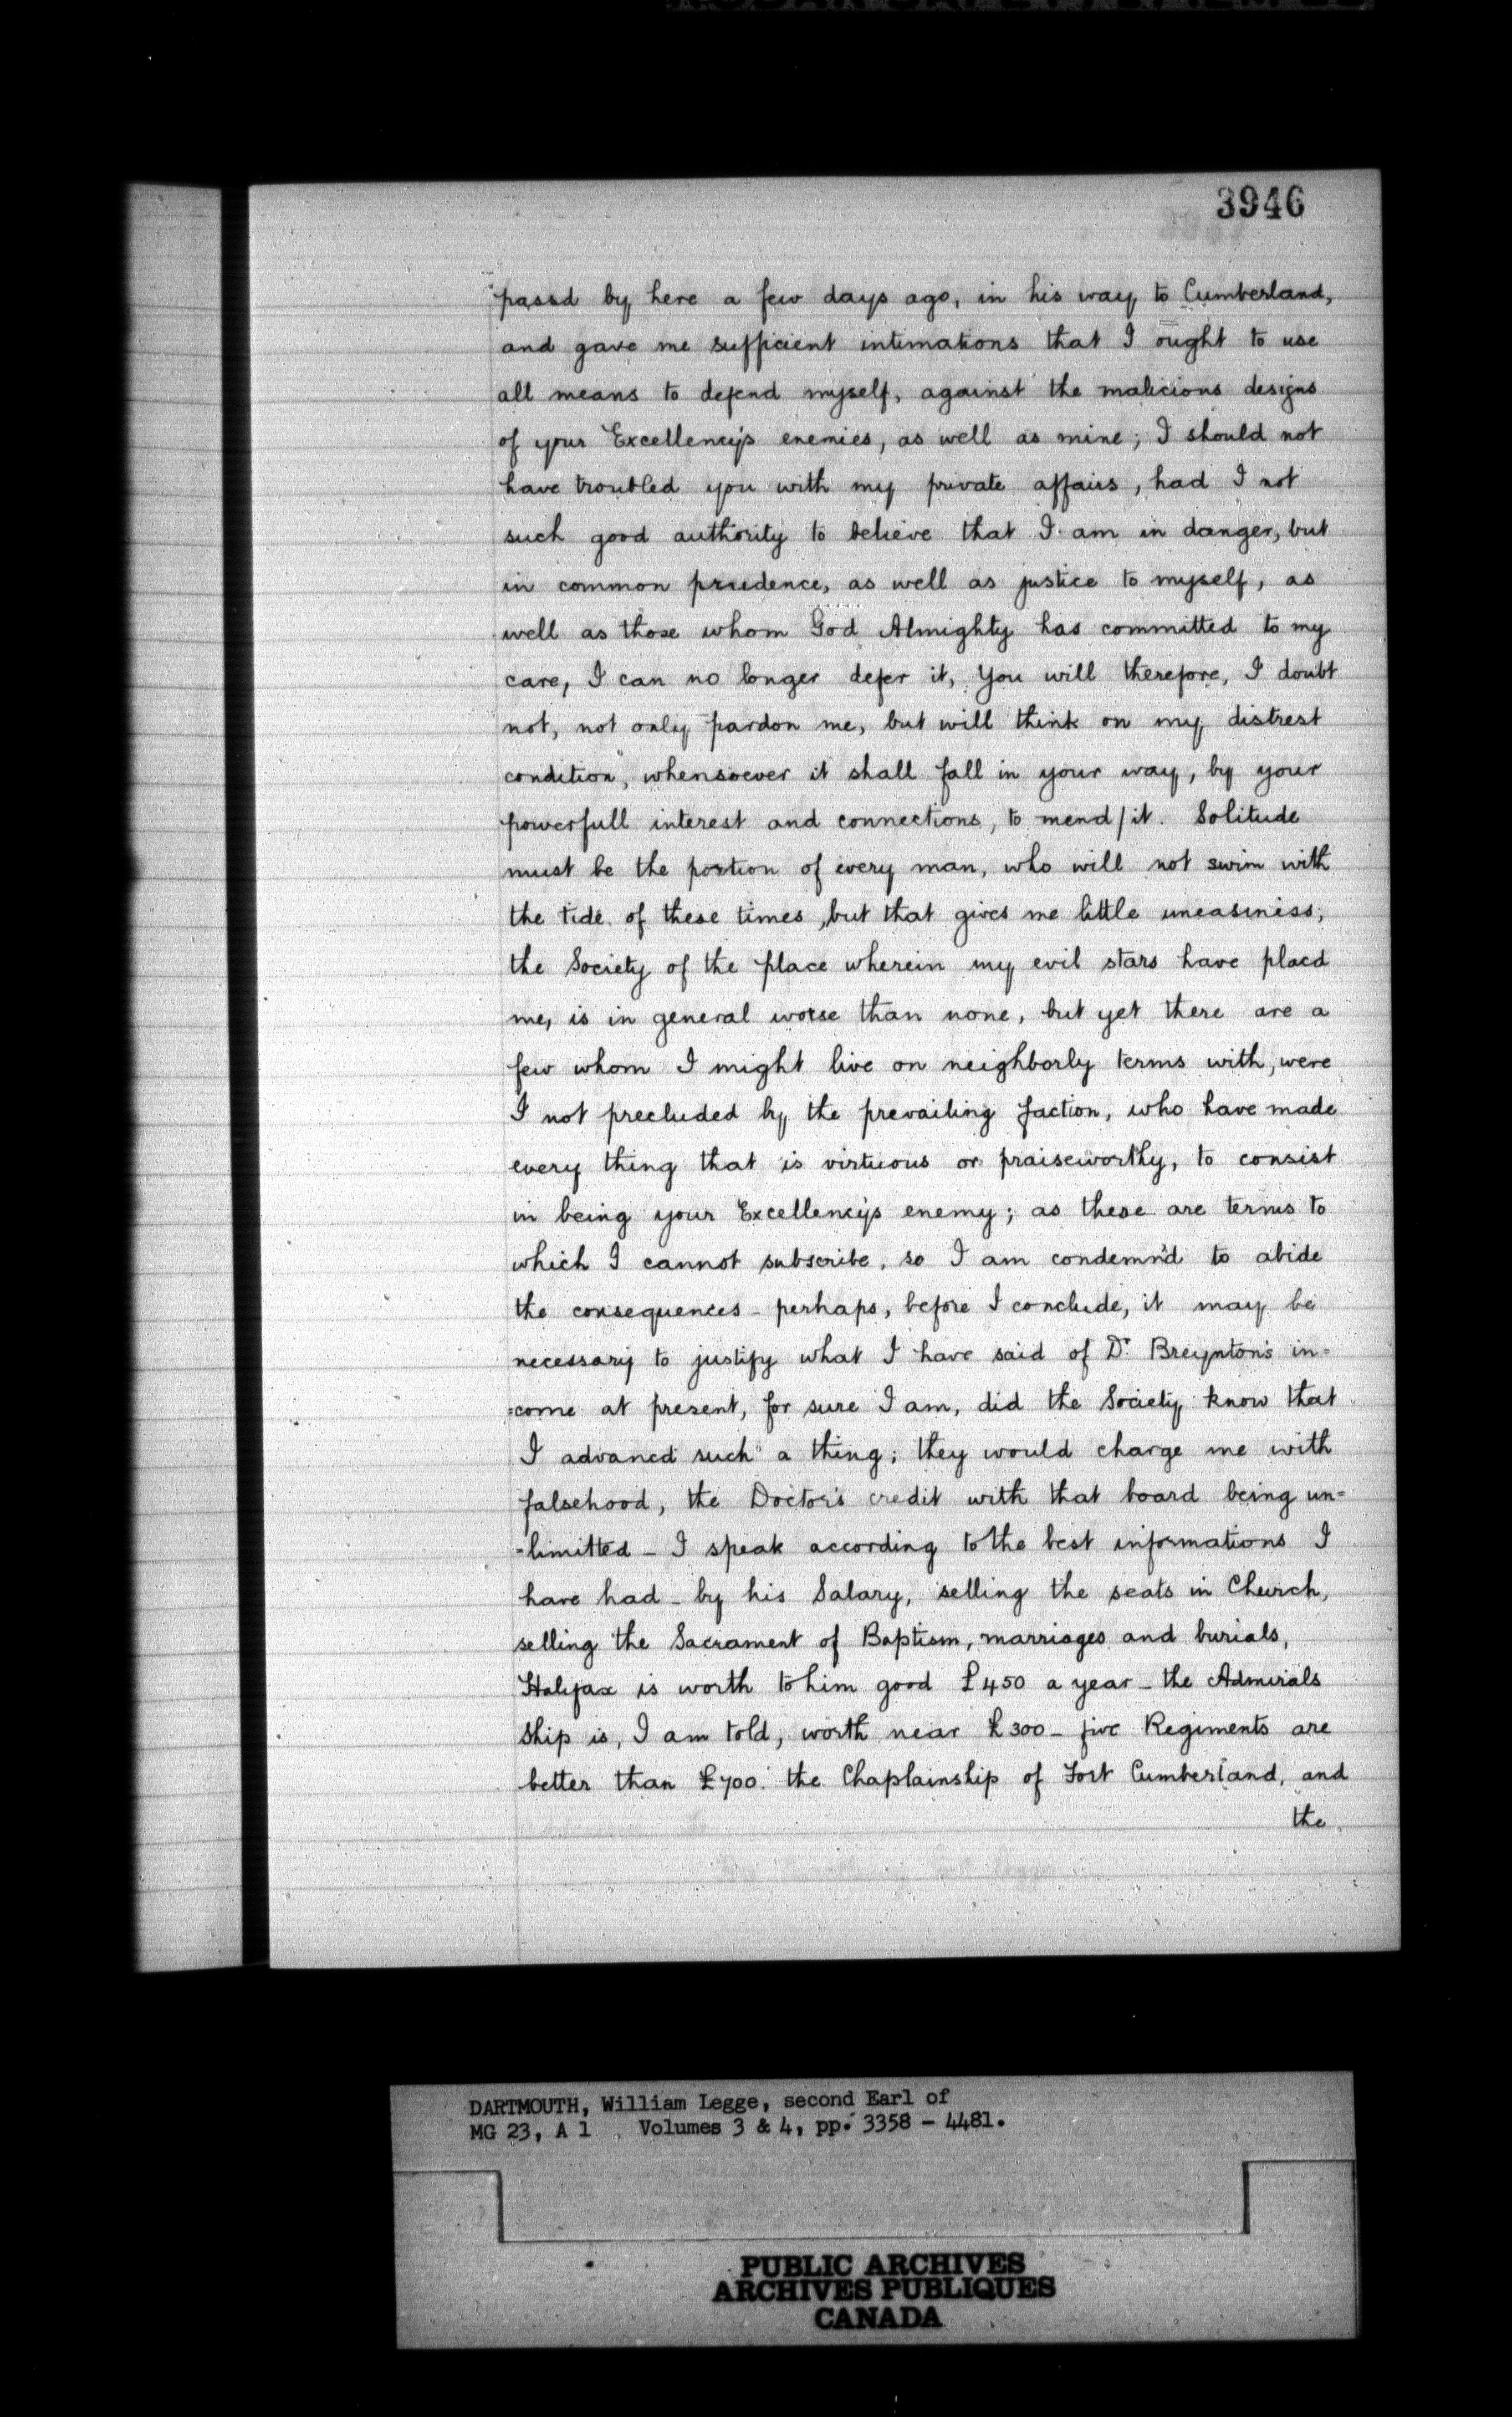 3946
passd by here a few days ago, in his way to Cumberland,
and gave me sufficient intimations that I ought to use
all means to defend myself, against the malicious designs
of your Excellency's enemies, as well as mine; I should not
have troubled you with my private affairs, had I not
such good authority to believe that I am in danger, but
in common prudence, as well as justice to myself, as
well as those whom God Almighty has committed to my
care, I can no longer defer it, You will therefore, I doubt
not, not only pardon me, but will think on my distrest
condition, whensoever it shall fall in your way, by your
powerfull interest and connections, to mend/it. Solitude
must be the portion of every man, who will not swim with
the tide of these times, but that gives me little uneasiness,
the Society of the place wherein my evil stars have placd
me, is in general worse than none, but yet there are a
few whom I might live on neighborly terms with, were
I not precluded by the prevailing faction, who have made
every thing that is virtuous or praiseworthy, to consist
in being your Excellency's enemy; as these are terms to
which I cannot subscribe, so I am condemn'd to abide
the consequences - perhaps, before I conclude, it may be
necessary to justify what I have said of Dr. Breynton's in=
=come at present, for sure I am, did the Society know that
I advancd such a thing; they would charge me with
falsehood, the Doctor's credit with that board being un=
=limitted - I speak according to the best informations I
have had - by his Salary, selling the seats in Church,
selling the Sacrament of Baptism, marriages and burials,
Halifax is worth to him good £450 a year - the Admirals
Ship is, I am told, worth near £300 - five Regiments are
better than £700. the Chaplainship of Fort Cumberland, and
the
DARTMOUTH, William Legge, second Earl of
MG 23, A 1 Volumes 3 & 4, pp. 3358 - 4481.
PUBLIC ARCHIVES
ARCHIVES PUBLIQUES
CANADA